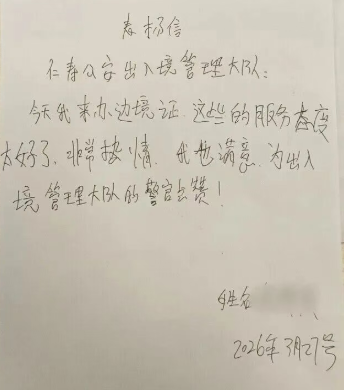 表扬信
仁寿公安出入境管理大队:
今天我来办边境证.这些的服务态度
太好了.非常热情.我也满意.为出入
境管理大队的警官点赞!
姓名
2026年3月27号